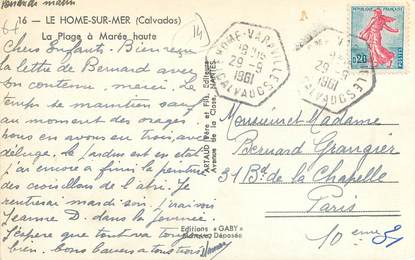 vendredi matin
16 — LE HOME-SUR-MER (Calvados)
La Plage à Marée haute
14
Chers Enfants. Bien reçu
la lettre de Bernard avec
son contenu. merci. Le
temps se maintien sauf
au moment des orages
nous en avons eu trois, avec
déluge. Le jardin est en état
j'ai encore à finir la peinture
des croisillons de l'abri. Je
rentrerai mardi soir. J'irai voir
Jeanne D. dans la journée.
J'espère que tout va toujours
bien. bons baisers à tous trois
ARTAUD Père et Fils, Editeurs
Avenue de la Close, NANTES
Editions « GABY »
Marque Déposée
HOME-VARAVILLE
18H15
29-9
1961
CALVADOS
29-9
1961
CALVADOS
0,20
POSTES
Monsieur et Madame
Bernard Grangier
31 Bd de la Chapelle
Paris
10 eme